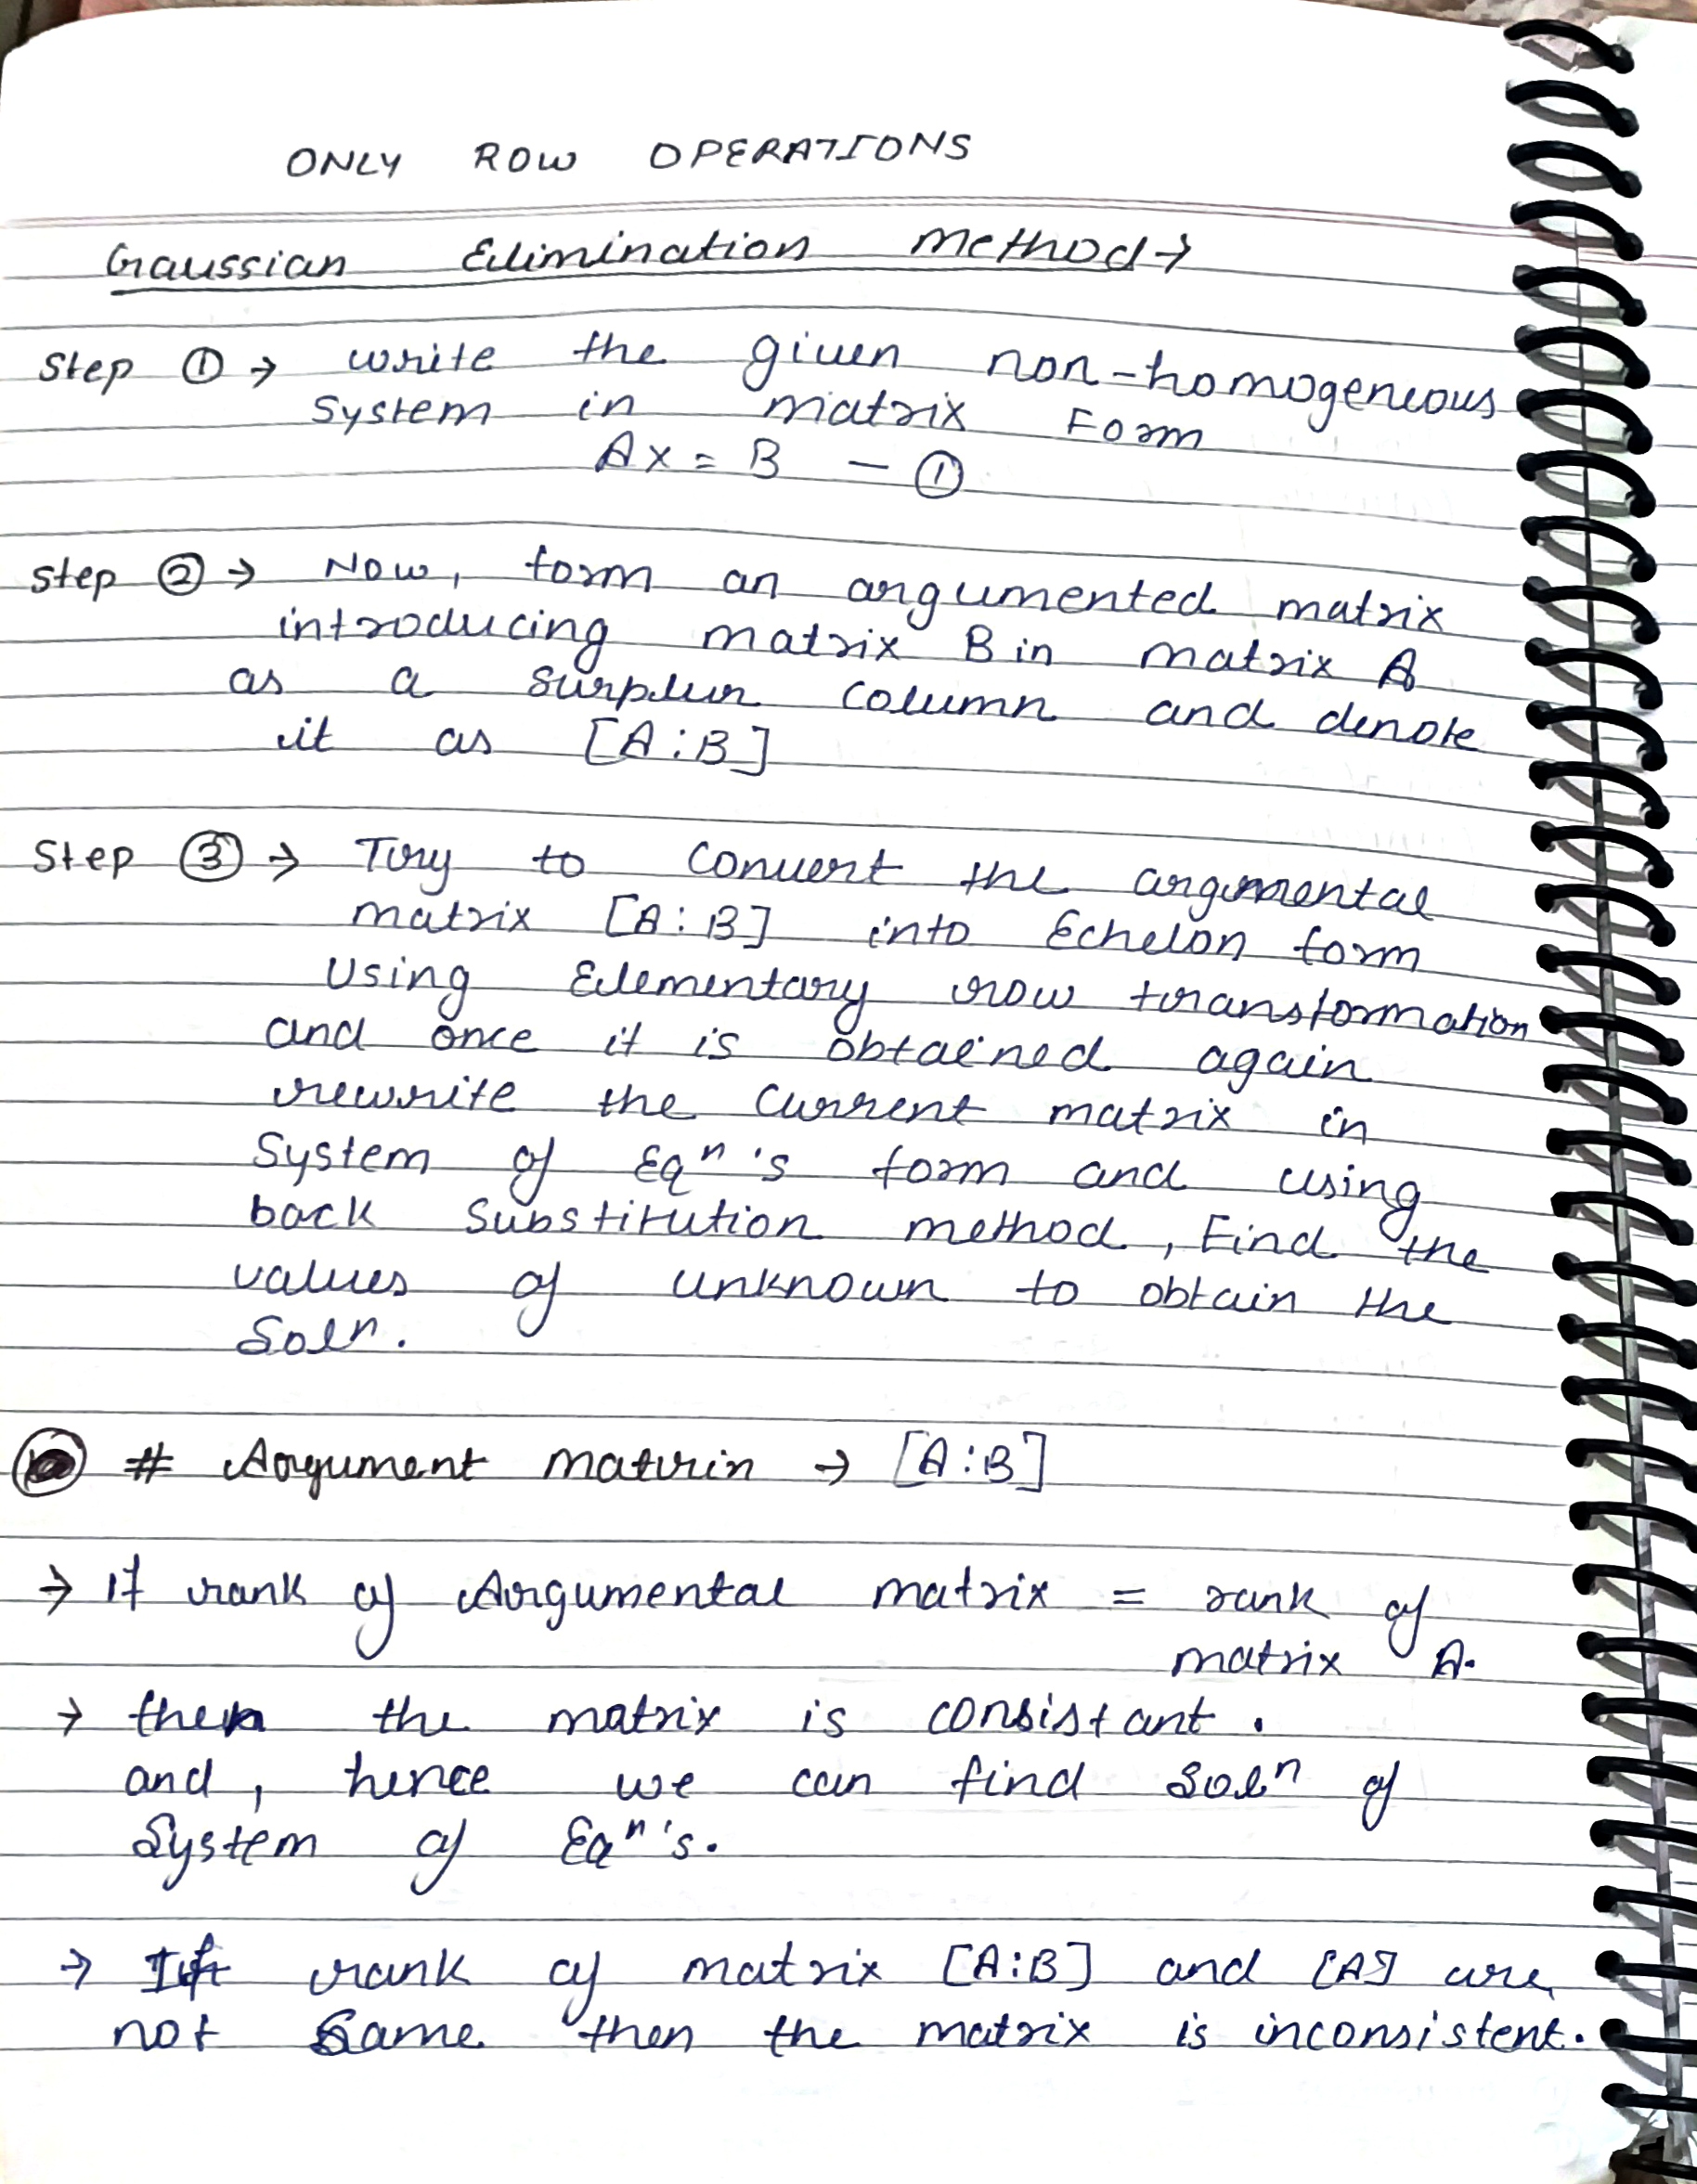 ONLY ROW OPERATIONS
Gaussian Elimination Method →
Step ① → write the given non-homogeneous
System in matrix Form
AX = B — ①
Step ② → Now, form an argumented matrix
introducing matrix B in matrix A
as a surplun column and denote
it as [A:B]
Step ③ → Try to convert the argumental
matrix [A:B] into Echelon form
Using Elementary row transformation
and once it is obtained again
rewrite the current matrix in
System of Eqⁿ's form and using
back Substitution method, Find the
values of unknown to obtain the
Solⁿ.
# Argument matrix → [A:B]
→ if rank of Argumental matrix = rank of
matrix A.
→ then the matrix is consistant.
and, hence we can find Solⁿ of
System of Eqⁿ's.
→ If rank of matrix [A:B] and [A] are
not Same then the matrix is inconsistent.